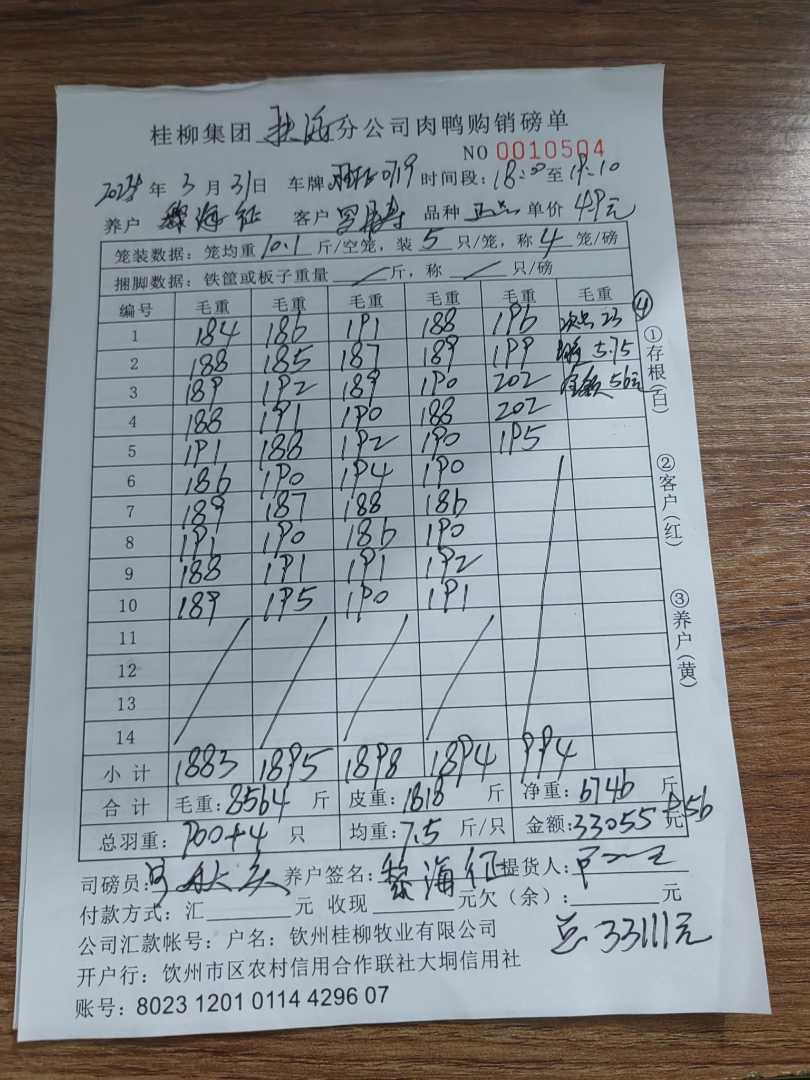 桂柳集团 钦海 分公司肉鸭购销磅单
NO 0010504
2024 年 3 月 31 日 车牌 0719 时间段：18:00 至 19:10
养户 黎海征 客户 品种 正品 单价 4.9元
笼装数据：笼均重 10.1 斤/空笼，装 5 只/笼，称 4 笼/磅
捆脚数据：铁筐或板子重量 / 斤，称 / 只/磅
编号 毛重 毛重 毛重 毛重 毛重 毛重 ④
1 184 186 191 188 196 次品 23
2 188 185 187 189 199 5.75
3 189 192 189 190 202 金额 56元
4 188 191 190 188 202
5 191 188 192 190 195
6 186 190 194 190
7 189 187 188 186
8 191 190 186 190
9 188 191 191 192
10 189 195 190 191
11
12
13
14
小计 1883 1895 1898 1894 994
合计 毛重：8564 斤 皮重：1818 斤 净重：6746 斤
总羽重：900+4 只 均重：7.5 斤/只 金额：33055 元 +56
司磅员： 养户签名：黎海征 提货人：
付款方式：汇 元 收现 元 欠（余）： 元
公司汇款帐号：户名：钦州桂柳牧业有限公司
总 33111元
开户行：饮州市区农村信用合作联社大垌信用社
账号：8023 1201 0114 4296 07
①存根（白）
②客户（红）
③养户（黄）